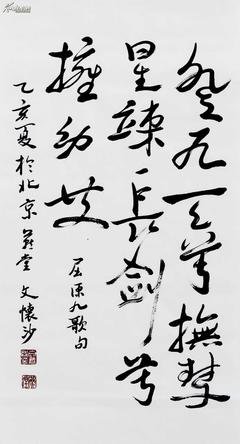 登九天兮撫彗
星竦長劍兮
擁幼艾
屈原九歌句
乙亥夏於北京燕堂文懷沙